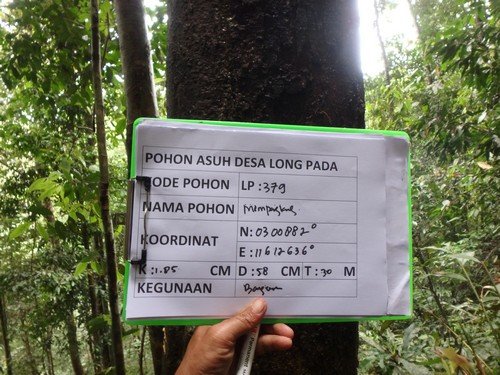 POHON ASUH DESA LONG PADA
KODE POHON LP : 379
NAMA POHON
KOORDINAT N : 0300882°
E : 11612636°
K : 1.85 CM D : 58 CM T : 30 M
KEGUNAAN